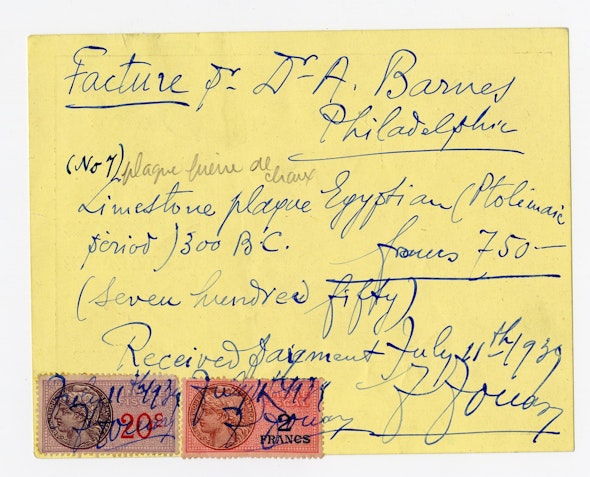 Facture pr Dr A. Barnes
Philadelphia
(No 7) plaque pierre de chaux
Limestone plaque Egyptian (Ptolimaic
period) 300 B.C. francs 750-
(seven hundred fifty)
Received payment July 11th/939
July 11th/939
20c
2
FRANCS